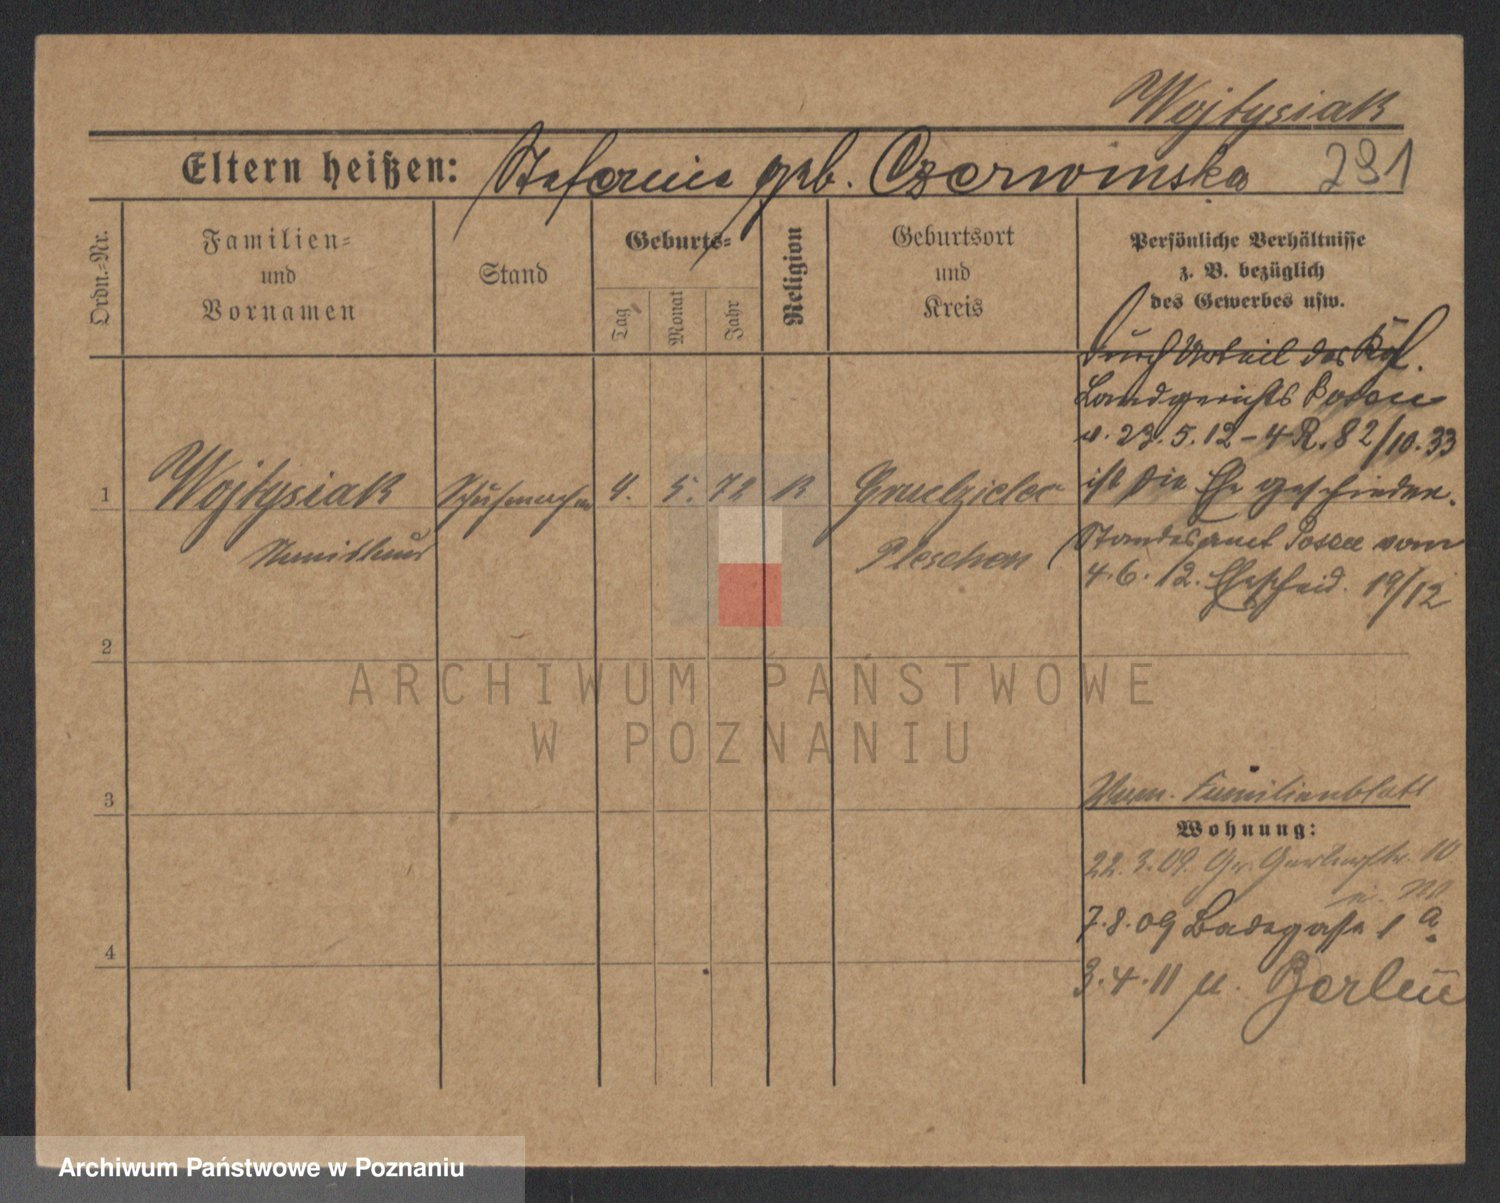 Wojtysiak
Eltern heißen: Stefanie geb. Czerwinska 291
Ordn.=Nr.
Familien=
und
Vornamen
Stand
Geburts=
Tag
Monat
Jahr
Religion
Geburtsort
und
Kreis
Persönliche Verhältnisse
z. B. bezüglich
des Gewerbes usw.
durch Urteil des Kgl.
Landgerichts Posen
v. 23.5.12 - 4 R. 82/10.33
ist die Ehe geschieden.
Standesamt Posen vom
4.6.12. Ehescheid. 19/12
1 Wojtysiak Schuhmacher 4. 5. 72 K Grudzielec
Pleschen
2
3
4
Familienblatt
Wohnung:
22.3.09. Gr. Gerberstr. 10
7.8.09 Badegasse 1 a
3.4.11 n. Berlin
ARCHIWUM PAŃSTWOWE
W POZNANIU
Archiwum Państwowe w Poznaniu